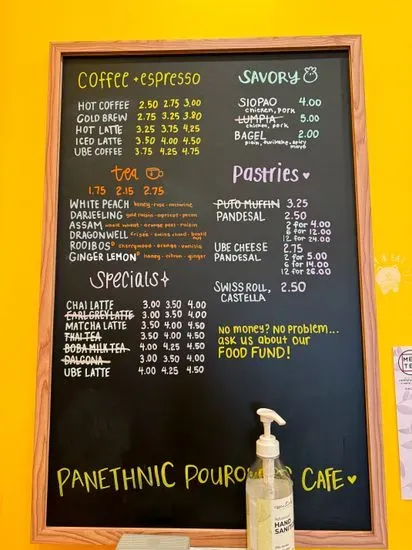 Coffee + espresso
HOT COFFEE 2.50 2.75 3.00
COLD BREW 2.75 3.25 3.80
HOT LATTE 3.25 3.75 4.25
ICED LATTE 3.50 4.00 4.50
UBE COFFEE 3.75 4.25 4.75
tea
1.75 2.15 2.75
WHITE PEACH
DARJEELING gold raisin - apricot - pecan
ASSAM
DRAGONWELL
ROOIBOS sherrywood - orange - vanilla
GINGER LEMON honey - citron - ginger
Specials
CHAI LATTE 3.00 3.50 4.00
EARL GREY LATTE 3.00 3.50 4.00
MATCHA LATTE 3.50 4.00 4.50
THAI TEA 3.50 4.00 4.50
BOBA MILK TEA 4.00 4.25 4.50
DALGONA 3.00 3.50 4.00
UBE LATTE 4.00 4.25 4.50
SAVORY
SIOPAO 4.00
chicken, pork
LUMPIA 5.00
chicken, pork
BAGEL 2.00
plain, furikake, spicy
mayo
Pastries
PUTO MUFFIN 3.25
PANDESAL 2.50
2 for 4.00
6 for 12.00
12 for 24.00
UBE CHEESE 2.75
PANDESAL 2 for 5.00
6 for 14.00
12 for 26.00
SWISS ROLL, 2.50
CASTELLA
No money? No problem...
ask us about our
FOOD FUND!
PANETHNIC CAFE
HAND